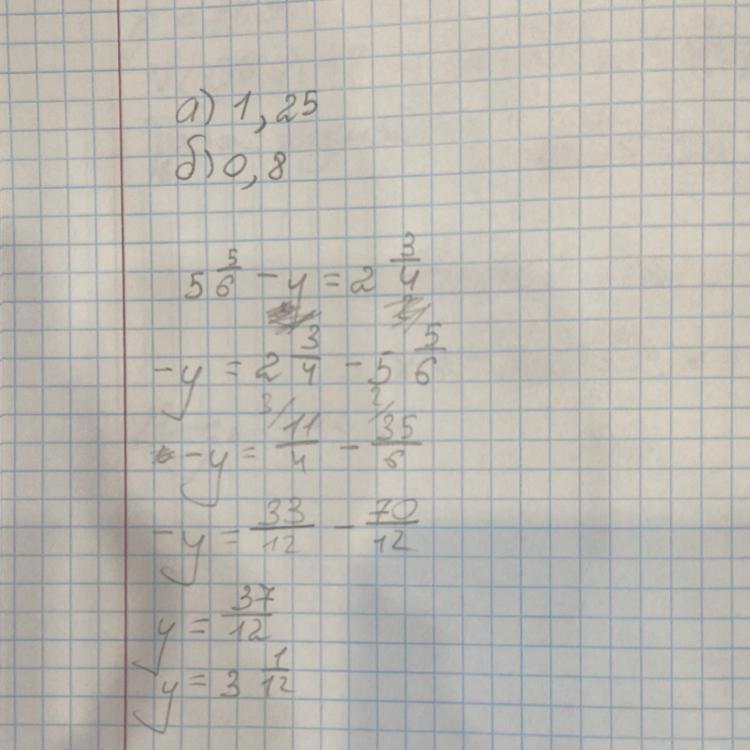 а) 1,25
б) 0,8
5 5/6 - y = 2 3/4
-y = 2 3/4 - 5 5/6
-y = 3/ 11/4 - 2/ 35/6
-y = 33/12 - 70/12
y = 37/12
y = 3 1/12